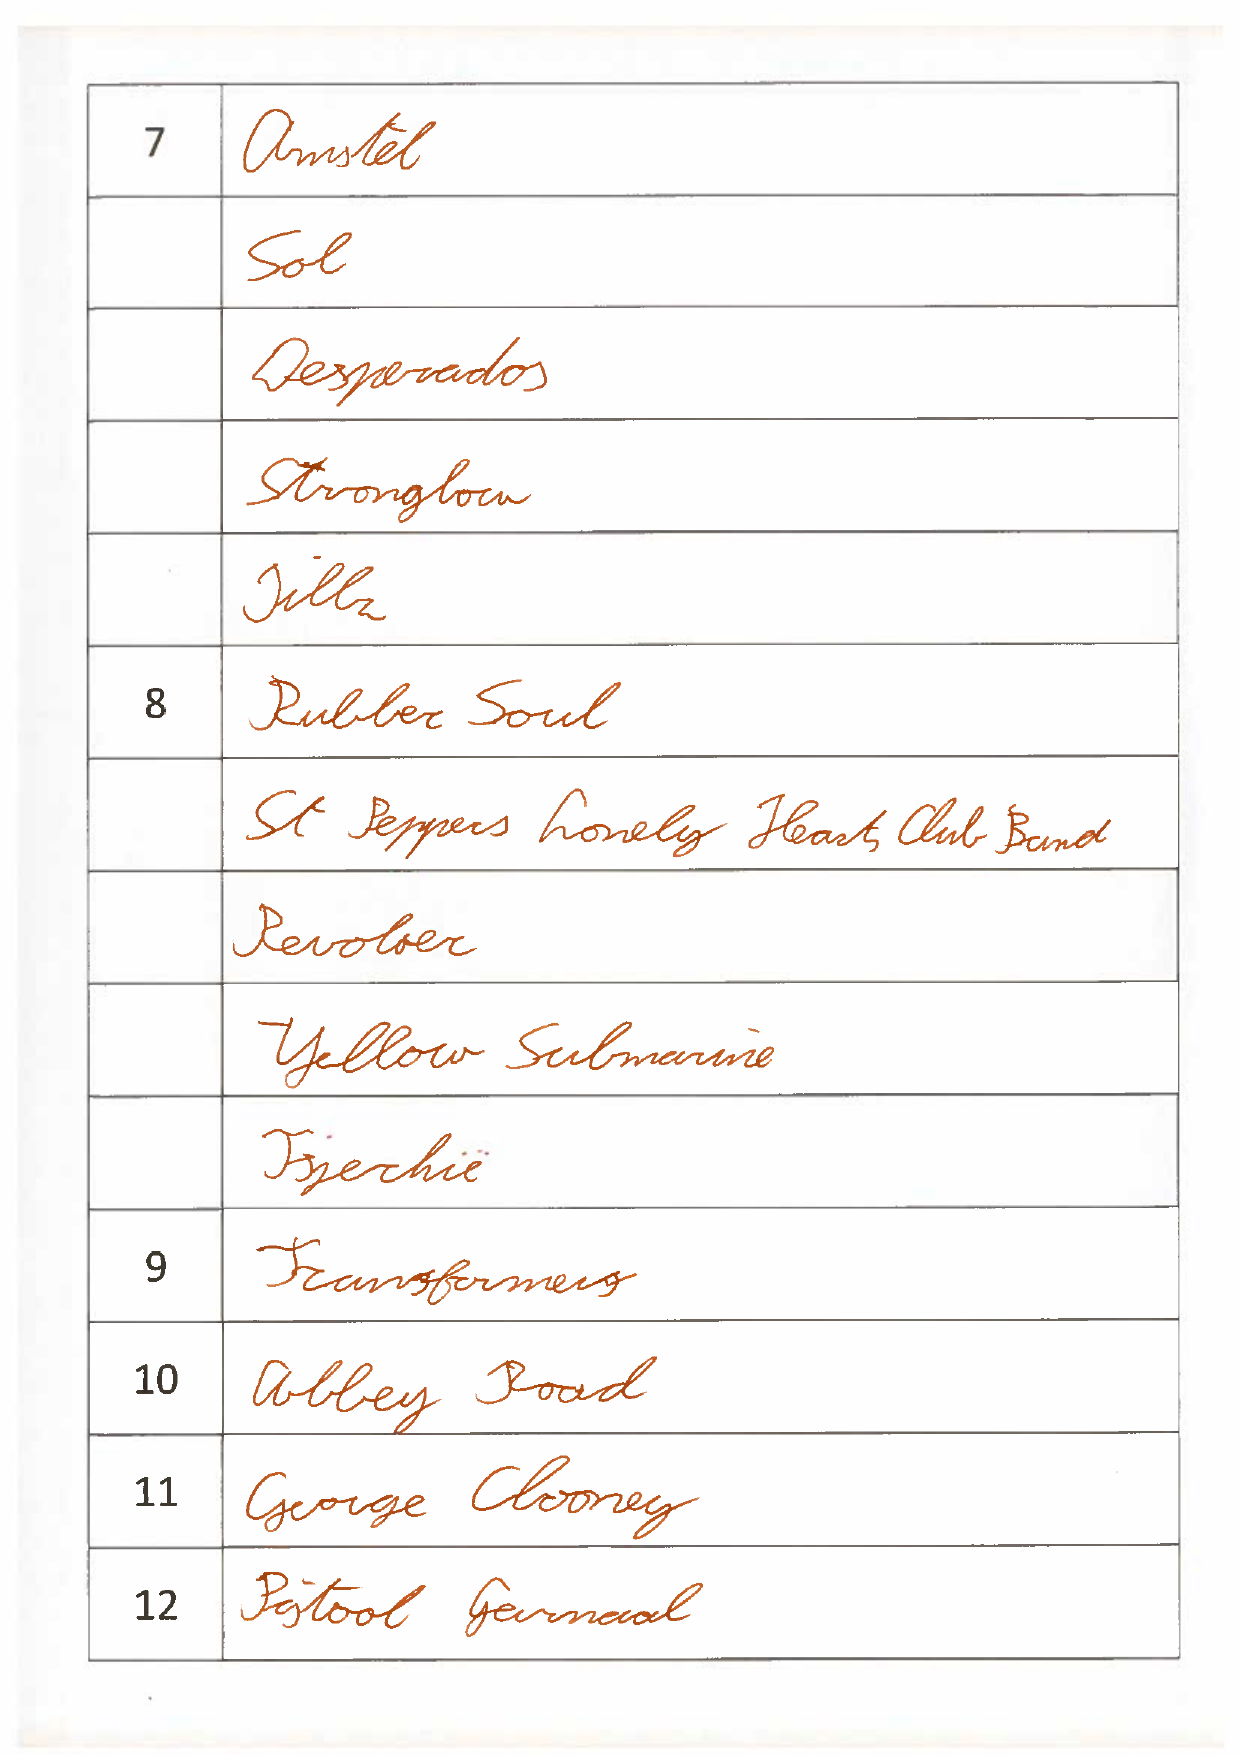 7 Amstel
Sol
Desperados
Stronglow
Jillz
8 Rubber Soul
St Peppers Lonely Heart Club Band
Revolver
Yellow Submarine
Tsjechië
9 Transformers
10 Abbey Road
11 George Clooney
12 Pistool Garnaal